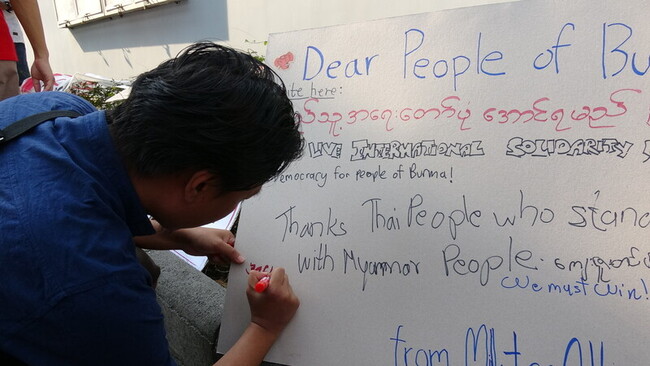 Dear People of Bu
ite here:
သူ့ အရေးတော်ပုံ အောင်ရမည်
LIVE INTERNATIONAL SOLIDARITY
emocracy for people of Burma!
Thanks Thai People who stand
with Myanmar People.
We must Win!
from